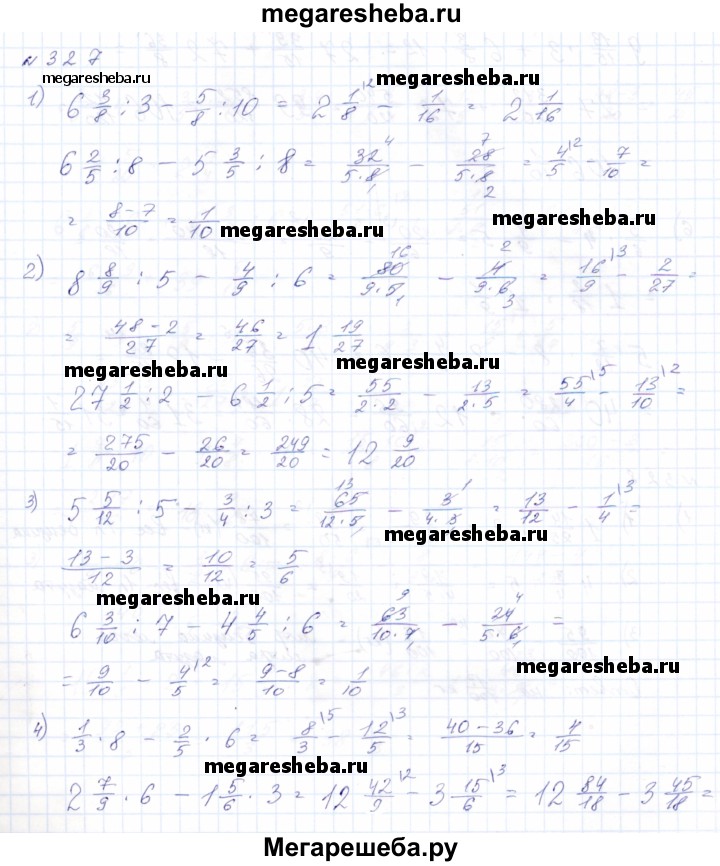 megaresheba.ru
№ 327
megaresheba.ru
megaresheba.ru
1) 6 3/8 : 3 − 5/8 : 10 = 2 1/8 \2 − 1/16 = 2 1/16
6 2/5 : 8 − 5 3/5 : 8 = 32 4/5·8 1 − 28 7/5·8 2 = 4/5 \2 − 7/10 =
= 8−7/10 = 1/10
megaresheba.ru
megaresheba.ru
2) 8 8/9 : 5 − 4/9 : 6 = 80 16/9·5 1 − 4 2/9·6 3 = 16/9 \3 − 2/27 =
= 48−2/27 = 46/27 = 1 19/27
megaresheba.ru
megaresheba.ru
27 1/2 : 2 − 6 1/2 : 5 = 55/2·2 − 13/2·5 = 55/4 \5 − 13/10 \2 =
= 275/20 − 26/20 = 249/20 = 12 9/20
3) 5 5/12 : 5 − 3/4 : 3 = 65 13/12·5 1 − 3 1/4·3 = 13/12 − 1/4 \3 =
megaresheba.ru
13−3/12 = 10/12 = 5/6
megaresheba.ru
6 3/10 : 7 − 4 4/5 : 6 = 63 9/10·7 1 − 24 4/5·6 1 =
megaresheba.ru
= 9/10 − 4/5 \2 = 9−8/10 = 1/10
4) 1/3 · 8 − 2/5 · 6 = 8/3 \5 − 12/5 \3 = 40−36/15 = 4/15
megaresheba.ru
2 7/9 · 6 − 1 5/6 · 3 = 12 42/9 \2 − 3 15/6 \3 = 12 84/18 − 3 45/18 =
Мегарешеба.ру